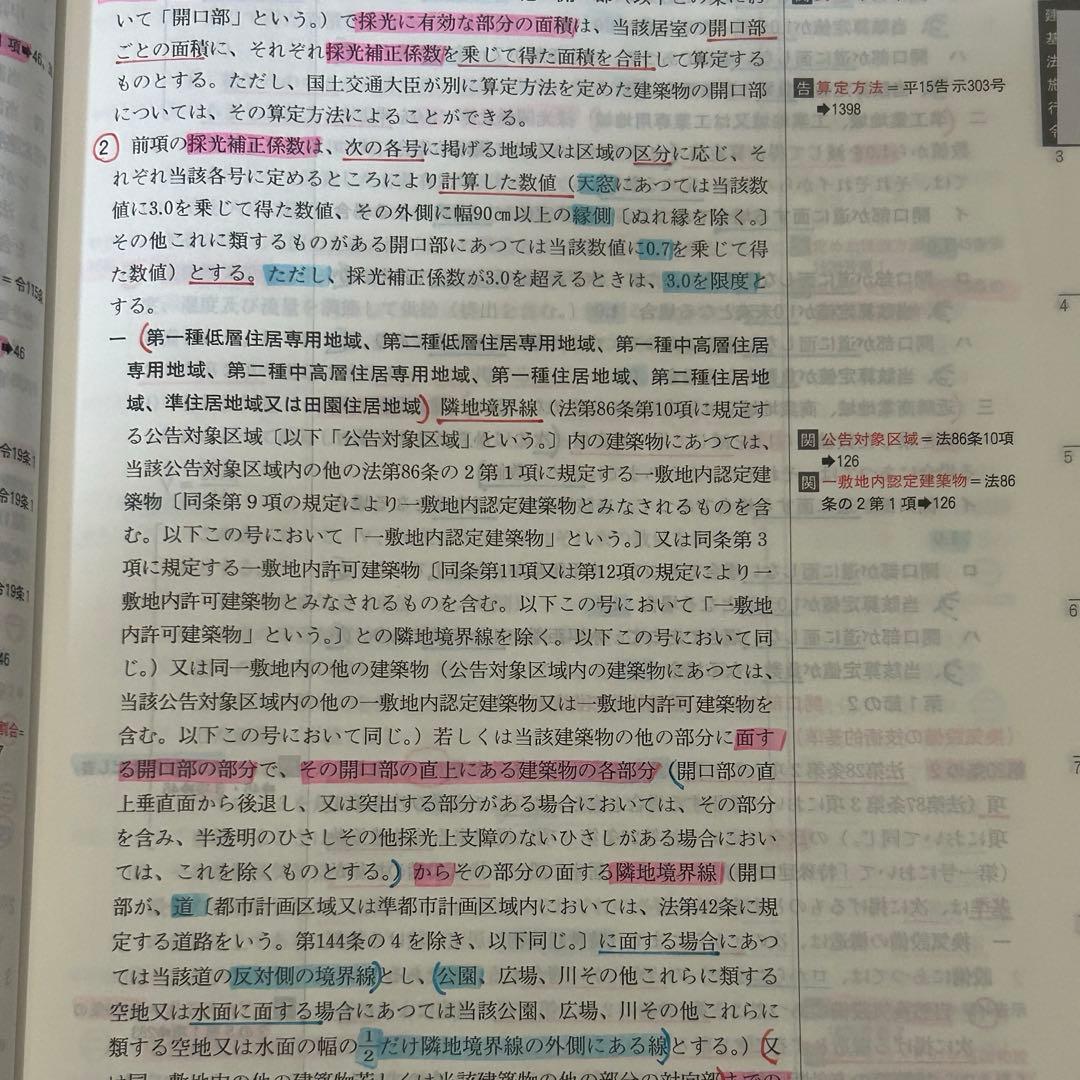 いて「開口部」という。）で採光に有効な部分の面積は、当該居室の開口部
ごとの面積に、それぞれ採光補正係数を乗じて得た面積を合計して算定する
ものとする。ただし、国土交通大臣が別に算定方法を定めた建築物の開口部
については、その算定方法によることができる。
② 前項の採光補正係数は、次の各号に掲げる地域又は区域の区分に応じ、そ
れぞれ当該各号に定めるところにより計算した数値（天窓にあつては当該数
値に3.0を乗じて得た数値、その外側に幅90㎝以上の縁側〔ぬれ縁を除く。〕
その他これに類するものがある開口部にあつては当該数値に0.7を乗じて得
た数値）とする。ただし、採光補正係数が3.0を超えるときは、3.0を限度と
する。
一 （第一種低層住居専用地域、第二種低層住居専用地域、第一種中高層住居
専用地域、第二種中高層住居専用地域、第一種住居地域、第二種住居地
域、準住居地域又は田園住居地域）隣地境界線（法第86条第10項に規定す
る公告対象区域〔以下「公告対象区域」という。〕内の建築物にあつては、
当該公告対象区域内の他の法第86条の2第1項に規定する一敷地内認定建
築物〔同条第9項の規定により一敷地内認定建築物とみなされるものを含
む。以下この号において「一敷地内認定建築物」という。〕又は同条第3
項に規定する一敷地内許可建築物〔同条第11項又は第12項の規定により一
敷地内許可建築物とみなされるものを含む。以下この号において「一敷地
内許可建築物」という。〕との隣地境界線を除く。以下この号において同
じ。）又は同一敷地内の他の建築物（公告対象区域内の建築物にあつては、
当該公告対象区域内の他の一敷地内認定建築物又は一敷地内許可建築物を
含む。以下この号において同じ。）若しくは当該建築物の他の部分に面す
る開口部の部分で、その開口部の直上にある建築物の各部分（開口部の直
上垂直面から後退し、又は突出する部分がある場合においては、その部分
を含み、半透明のひさしその他採光上支障のないひさしがある場合におい
ては、これを除くものとする。）からその部分の面する隣地境界線（開口
部が、道〔都市計画区域又は準都市計画区域内においては、法第42条に規
定する道路をいう。第144条の4を除き、以下同じ。〕に面する場合にあつ
ては当該道の反対側の境界線とし、公園、広場、川その他これらに類する
空地又は水面に面する場合にあつては当該公園、広場、川その他これらに
類する空地又は水面の幅の1/2だけ隣地境界線の外側にある線とする。）（又
告 算定方法＝平15告示303号
➡1398
関 公告対象区域＝法86条10項
➡126
関 一敷地内認定建築物＝法86
条の2第1項➡126
建
基
法
施
行
令
3
4
5
6
7